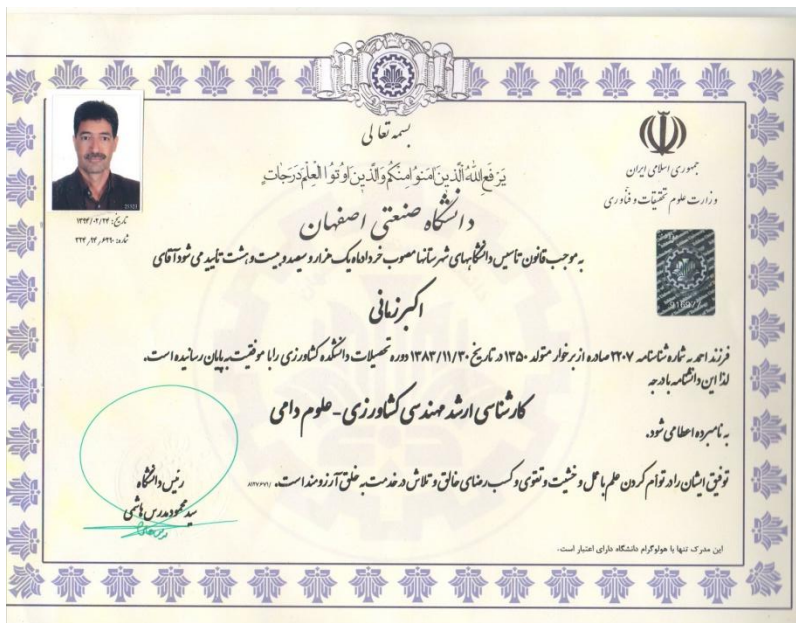 بسمه تعالی
یَرْفَعِ اللهُ الَّذینَ امَنوُا مِنکُمْ وَالَّذینَ اوُتوُا الْعِلْمَ دَرَجاتٍ
جمهوری اسلامی ایران
وزارت علوم تحقیقات و فنّاوری
دانشگاه صنعتی اصفهان
تاریخ: ۱۳۹۴/۰۲/۲۴
شماره:
به موجب قانون تأسیس دانشگاههای شهرستانها مصوب خرداد ماه یک هزار و سیصد و بیست و هشت تأیید می شود آقای
اکبر زمانی
فرزند احمد به شماره شناسنامه ۲۲۰۷ صادره از برخوار متولد ۱۳۵۰ در تاریخ ۱۳۸۳/۱۱/۳۰ دوره تحصیلات دانشکده کشاورزی را با موفقیت به پایان رسانیده است.
لذا این دانشنامه با درجه
کارشناسی ارشد مهندسی کشاورزی - علوم دامی
به نامبرده اعطا می شود.
توفیق ایشان را در توأم کردن علم با عمل و خشیت و تقوی و کسب رضای خالق و تلاش در خدمت به خلق آرزومند است.
رئیس دانشگاه
سید محمود مدرس هاشمی
این مدرک تنها با هولوگرام دانشگاه دارای اعتبار است.